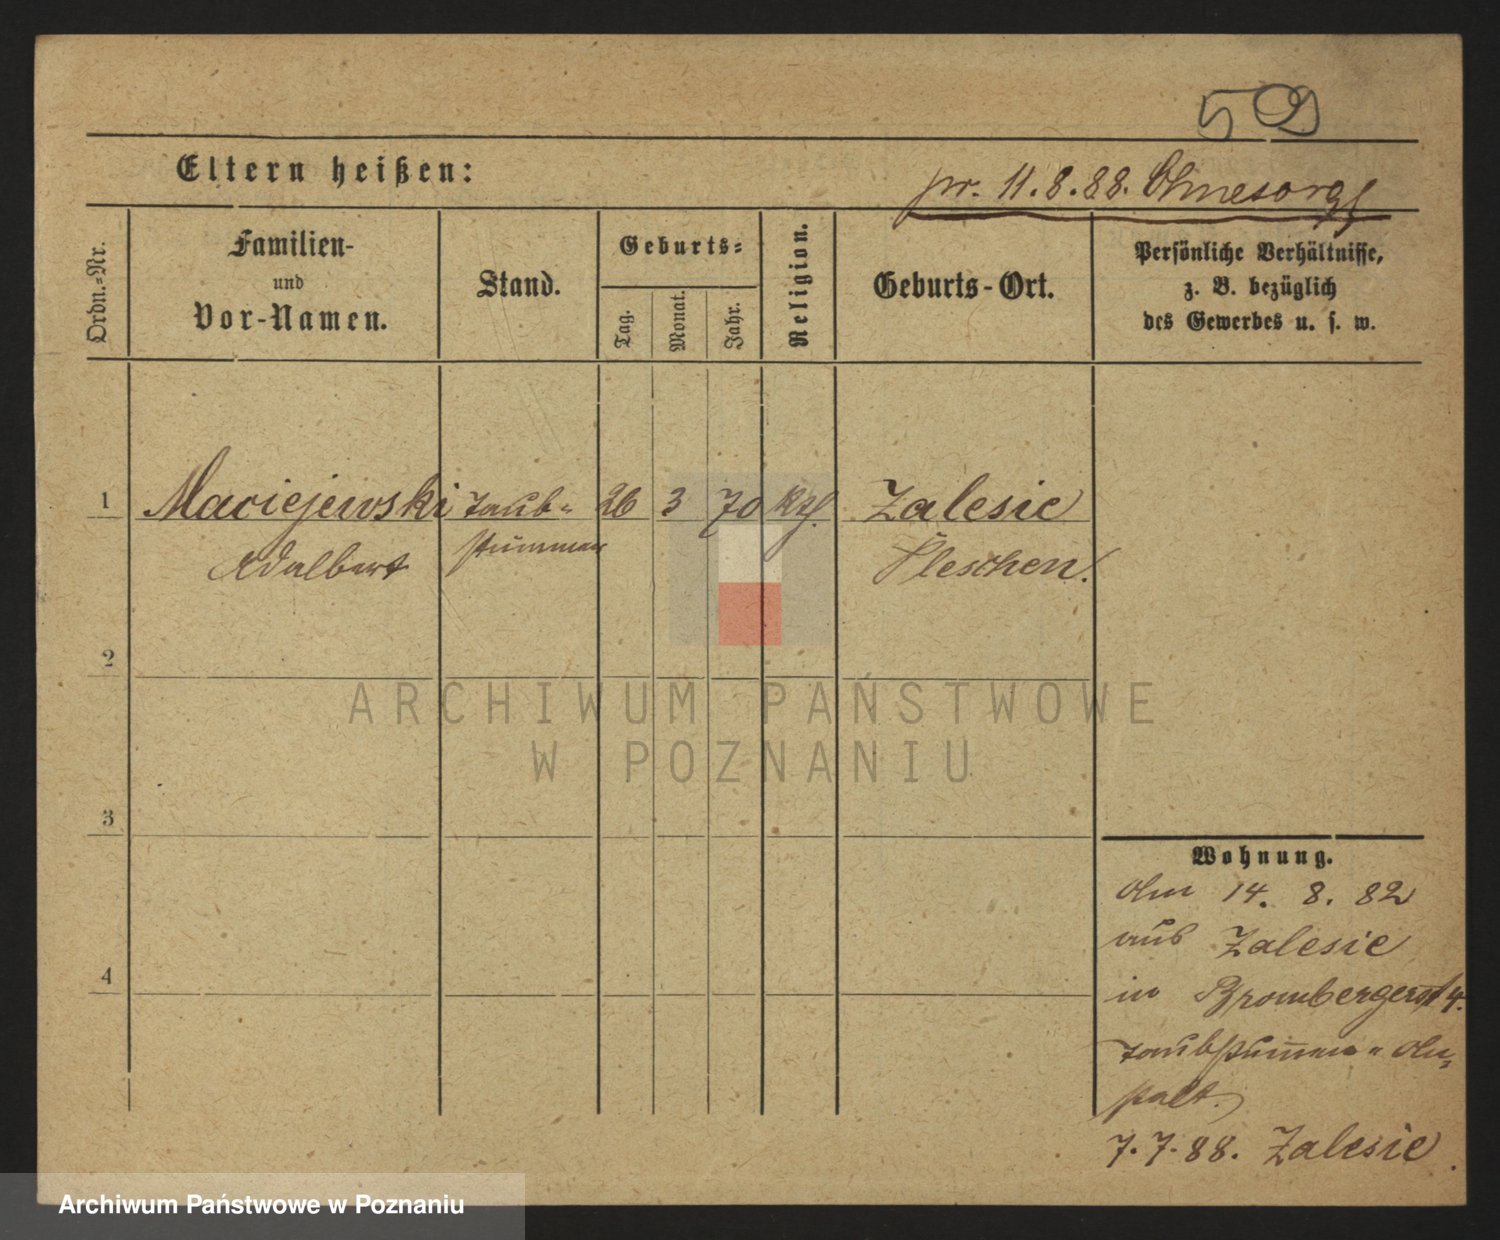 52
Eltern heißen:
pr. 11.8.88. Ohnesorg
Ordn.-Nr.
Familien-
und
Vor-Namen.
Stand.
Geburts-
Tag.
Monat.
Jahr.
Religion.
Geburts-Ort.
Persönliche Verhältnisse,
z. B. bezüglich
des Gewerbes u. s. w.
1 Maciejewski Taub- 26 3 70 kth. Zalesie
Adalbert stummer Pleschen.
2
ARCHIWUM PAŃSTWOWE
W POZNANIU
3
Wohnung.
Am 14. 8. 82
aus Zalesie
in Brombergerst 4.
Taubstum̄en-An-
stalt.
4
7.7.88. Zalesie.
Archiwum Państwowe w Poznaniu